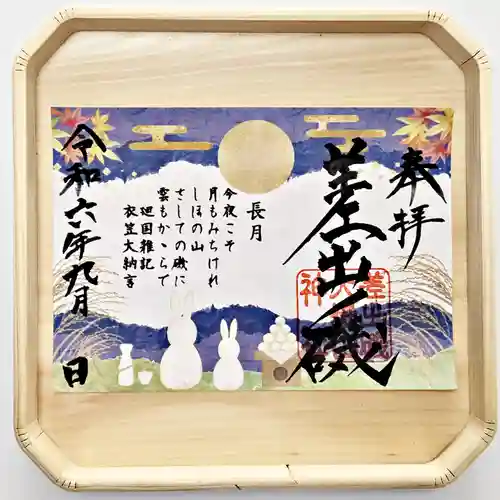 奉拝
差出磯
長月
今夜こそ
月もみちけれ
しほの山
さしての磯に
雲もかゝらで
廻国雑記
衣笠大納言
令和六年九月 日